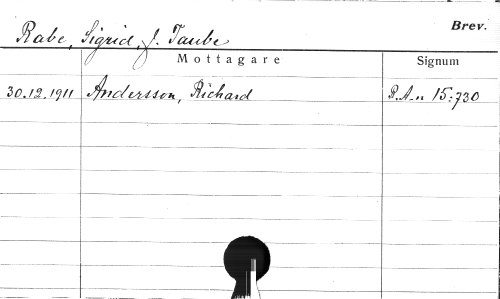 Rabe, Sigrid, f. Taube
Brev.
Mottagare
Signum
30.12.1911 Andersson, Richard P.A-n 15:730